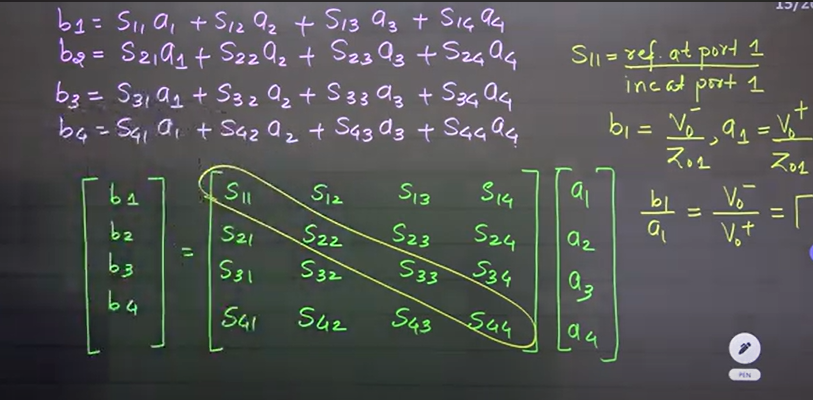 b1 = S11 a1 + S12 a2 + S13 a3 + S14 a4
b2 = S21 a1 + S22 a2 + S23 a3 + S24 a4
b3 = S31 a1 + S32 a2 + S33 a3 + S34 a4
b4 = S41 a1 + S42 a2 + S43 a3 + S44 a4
S11 = ref. at port 1
inc at port 1
b1 = V0⁻ / Z01 , a1 = V0⁺ / Z01
b1 / a1 = V0⁻ / V0⁺ = Γ
b1 S11 S12 S13 S14 a1
b2 = S21 S22 S23 S24 a2
b3 S31 S32 S33 S34 a3
b4 S41 S42 S43 S44 a4
PEN